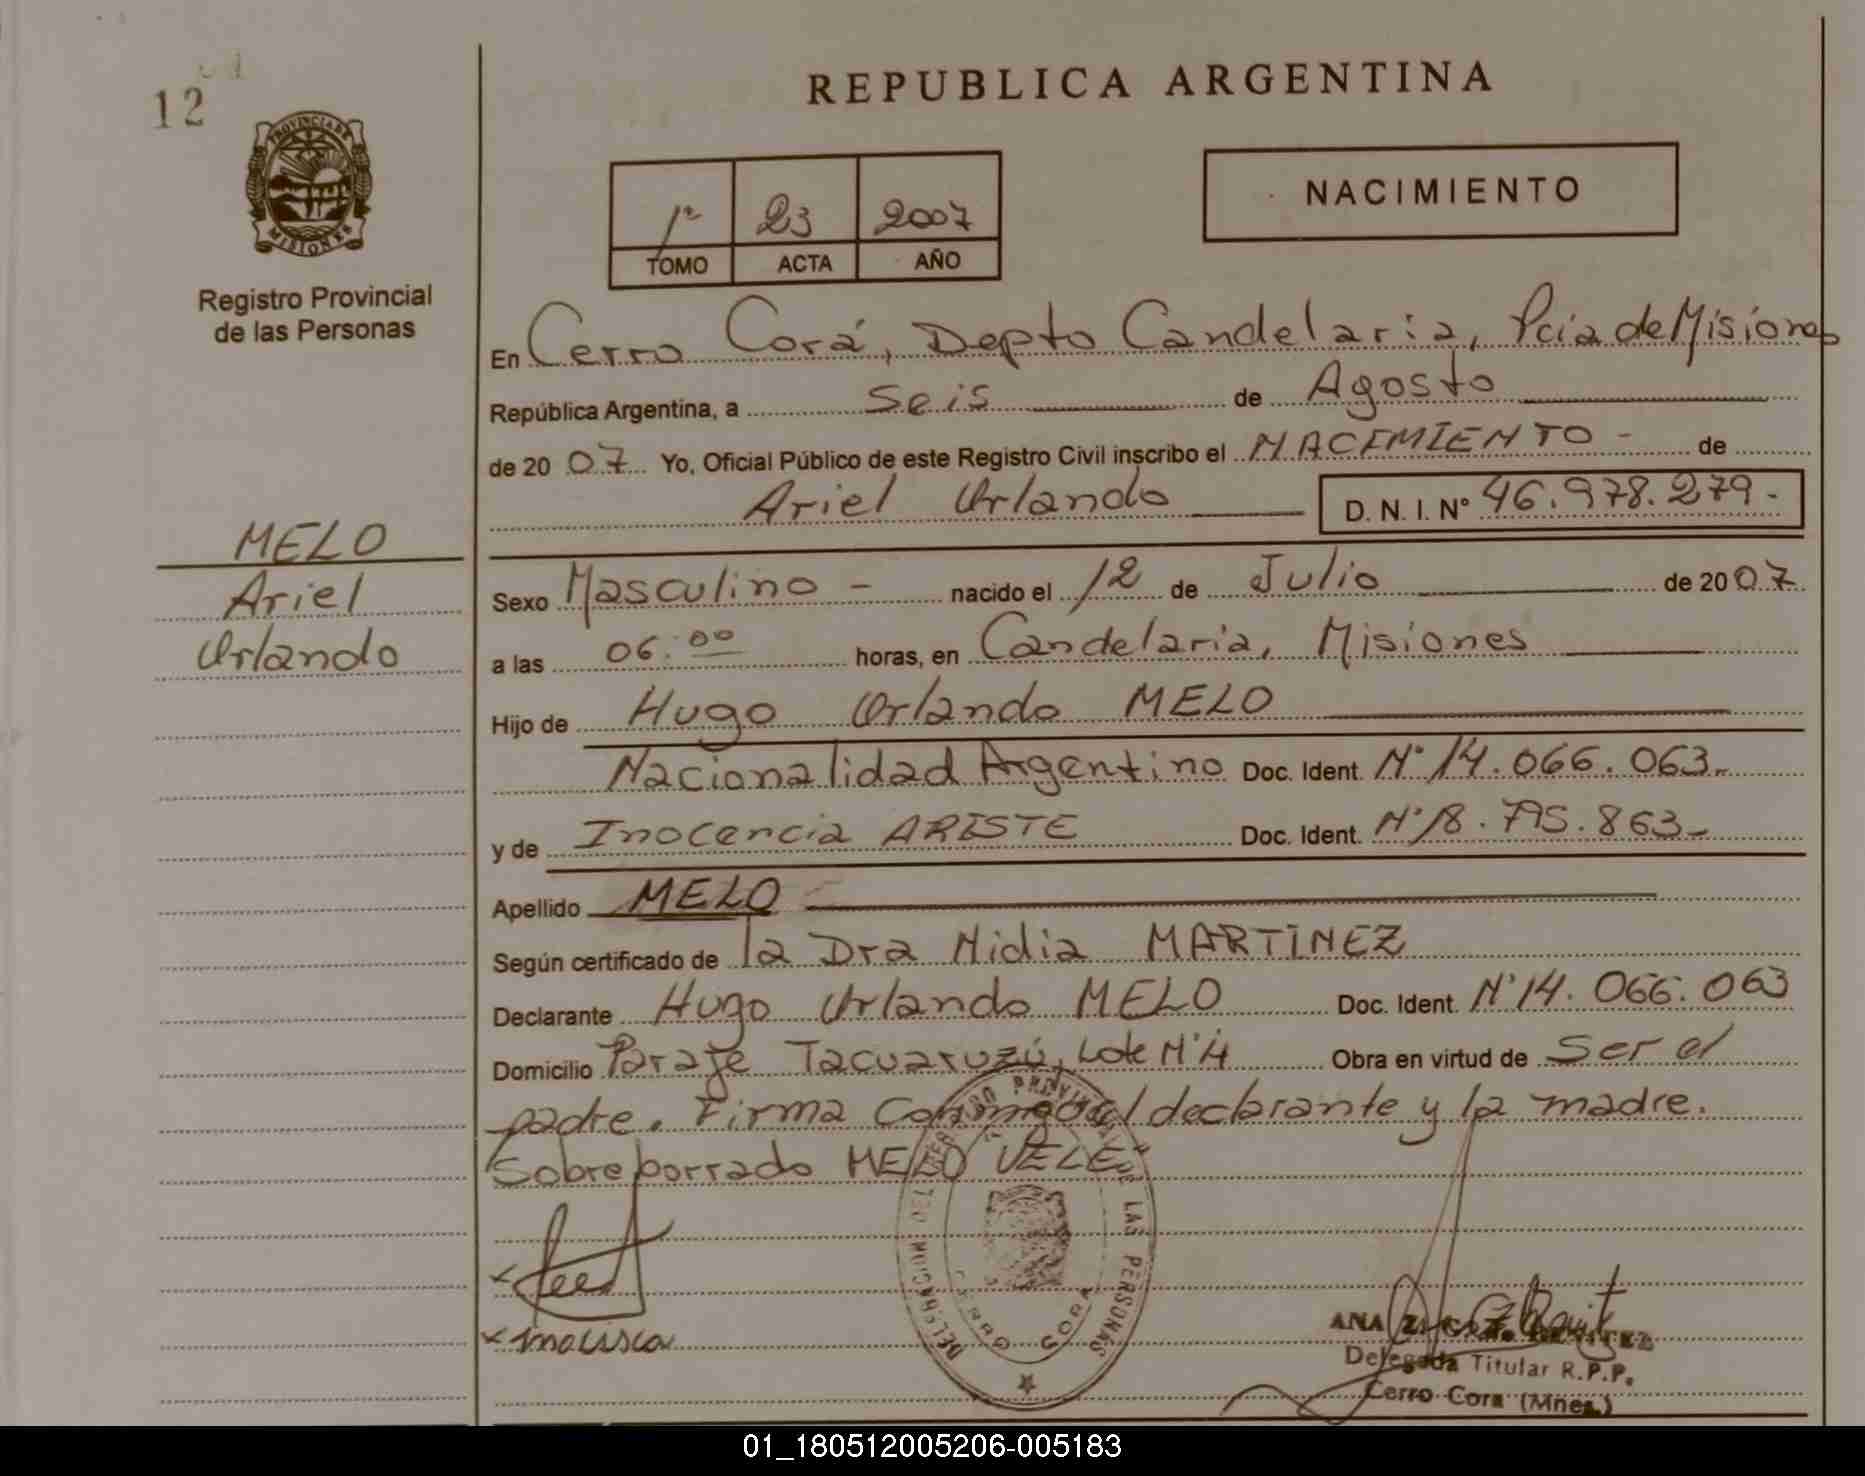 12
PROVINCIA DE
MISIONES
Registro Provincial
de las Personas
MELO
Ariel
Orlando
REPUBLICA ARGENTINA
1º 23 2007
TOMO ACTA AÑO
NACIMIENTO
En Cerro Corá, Depto Candelaria, Pcia de Misiones
República Argentina, a seis de Agosto
de 20 07 Yo, Oficial Público de este Registro Civil inscribo el NACIMIENTO - de
Ariel Orlando D. N. I. Nº 46.978.279.-
Sexo Masculino - nacido el 12 de Julio de 20 07
a las 06:00 horas, en Candelaria, Misiones
Hijo de Hugo Orlando MELO
Nacionalidad Argentino Doc. Ident. Nº 14.066.063.-
y de Inocencia ARISTE Doc. Ident. Nº 18.795.863-
Apellido MELO
Según certificado de la Dra Nidia MARTINEZ
Declarante Hugo Orlando MELO Doc. Ident. Nº 14.066.063
Domicilio Paraje Tacuaruzú, Lote Nº 4 Obra en virtud de ser el
padre. Firma conmigo el declarante y la madre.
Sobreborrado MELO VELE
PROVINCIAL DE LAS PERSONAS
CERRO CORA
ANA
Delegada Titular R.P.P.
Cerro Cora (Mnes.)
01_180512005206-005183